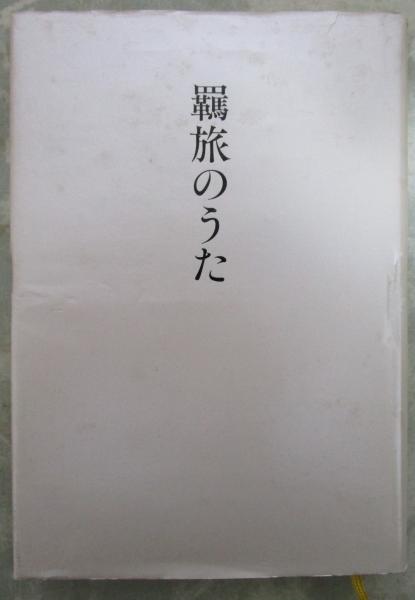 羈旅のうた